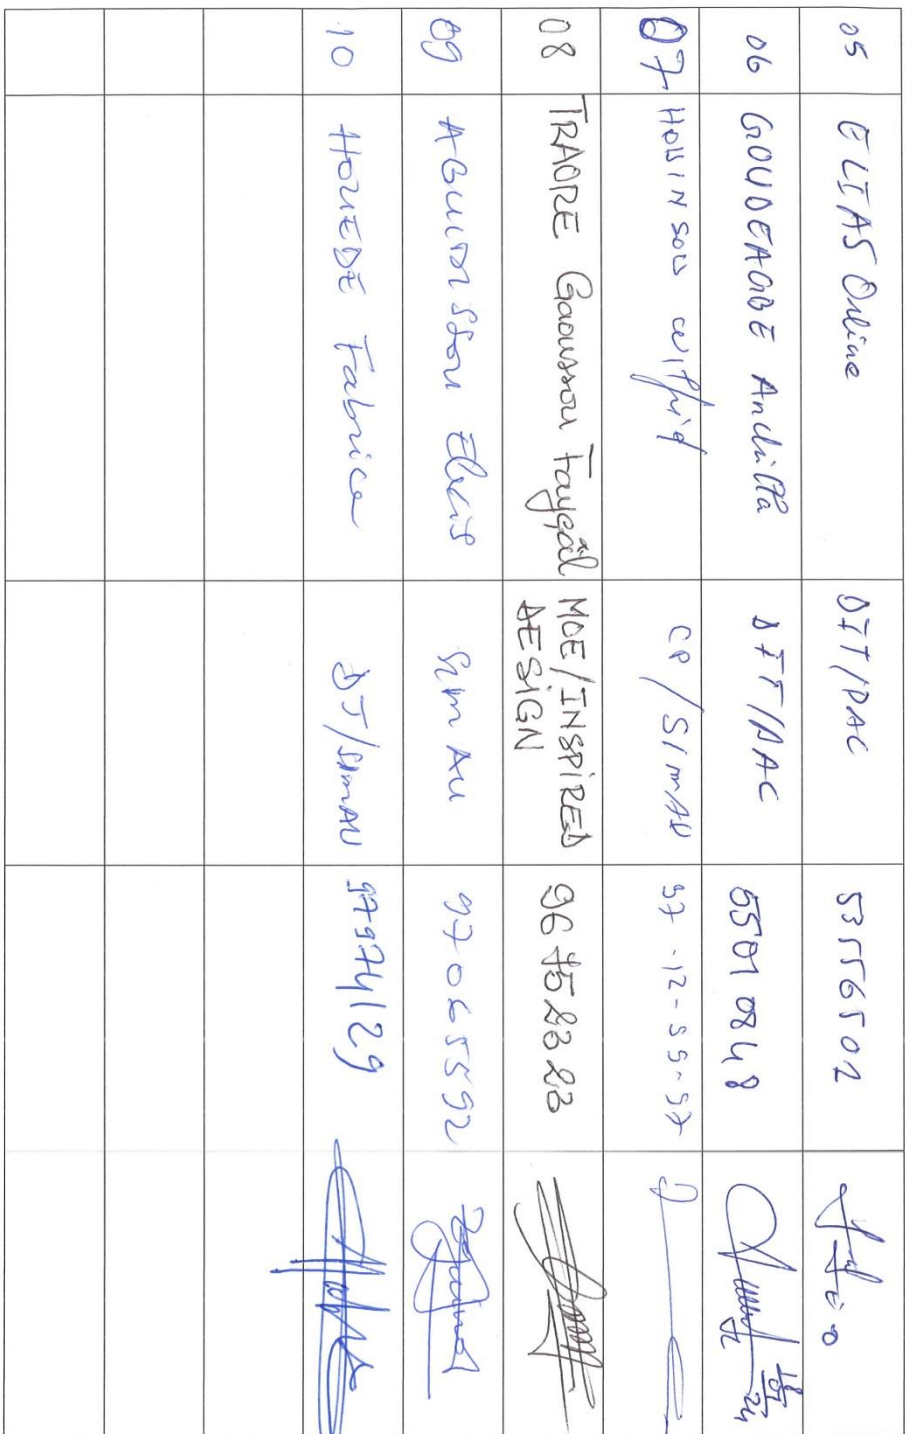 05 ELIAS Orline DIT/PAC 53556502
06 GOUDEAGBE Anchilla DIT/PAC 55010848
18/07/24
07 HOUINSOU Wilfrid CP/SImAU 97-12-55-97
08 TRAORE Gaoussou Fayçal MOE/INSPIRED DESIGN 96752828
09 SImAU 97065592
10 HOUEDE Fabrice DT/SImAU 97974129